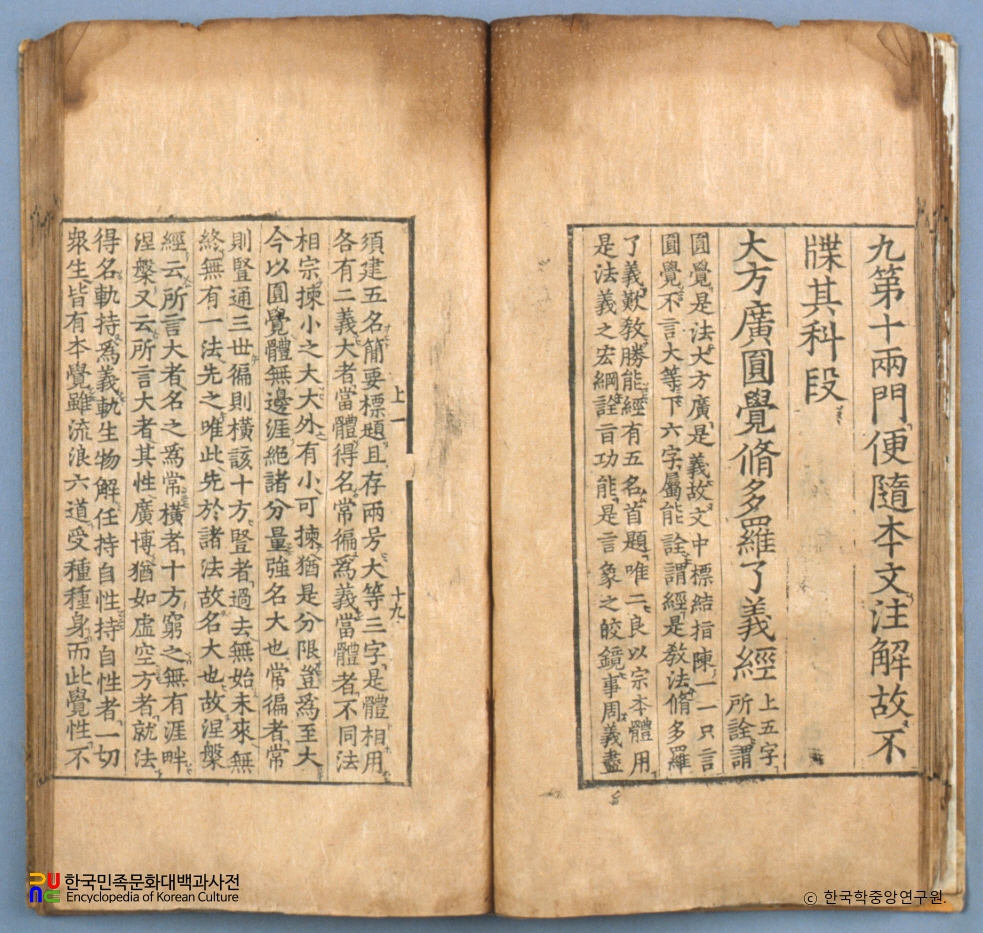 九第十兩門便隨本文注解故不
牒其科段
大方廣圓覺脩多羅了義經
上五字
所詮謂
圓覺是法大方廣是義故文中標結指陳一一只言
圓覺不言大等下六字屬能詮謂經是敎法脩多羅
了義歎敎勝能經有五名首題唯二良以宗本體用
是法義之宏綱詮旨功能是言象之皎鏡事周義盡
上一
十九
須建五名簡要標題且存兩号大等三字是體相用
各有二義大者當體得名常徧爲義當體者不同法
相宗揀小之大大外有小可揀猶是分限豈爲至大
今以圓覺體無邊涯絶諸分量強名大也常徧者常
則豎通三世徧則橫該十方豎者過去無始未來無
終無有一法先之唯此先於諸法故名大也故涅槃
經云所言大者名之爲常橫者十方窮之無有涯畔
涅槃又云所言大者其性廣博猶如虛空方者就法
得名軌持爲義軌生物解任持自性持自性者一切
衆生皆有本覺雖流浪六道受種種身而此覺性不
한국민족문화대백과사전
Encyclopedia of Korean Culture
© 한국학중앙연구원.